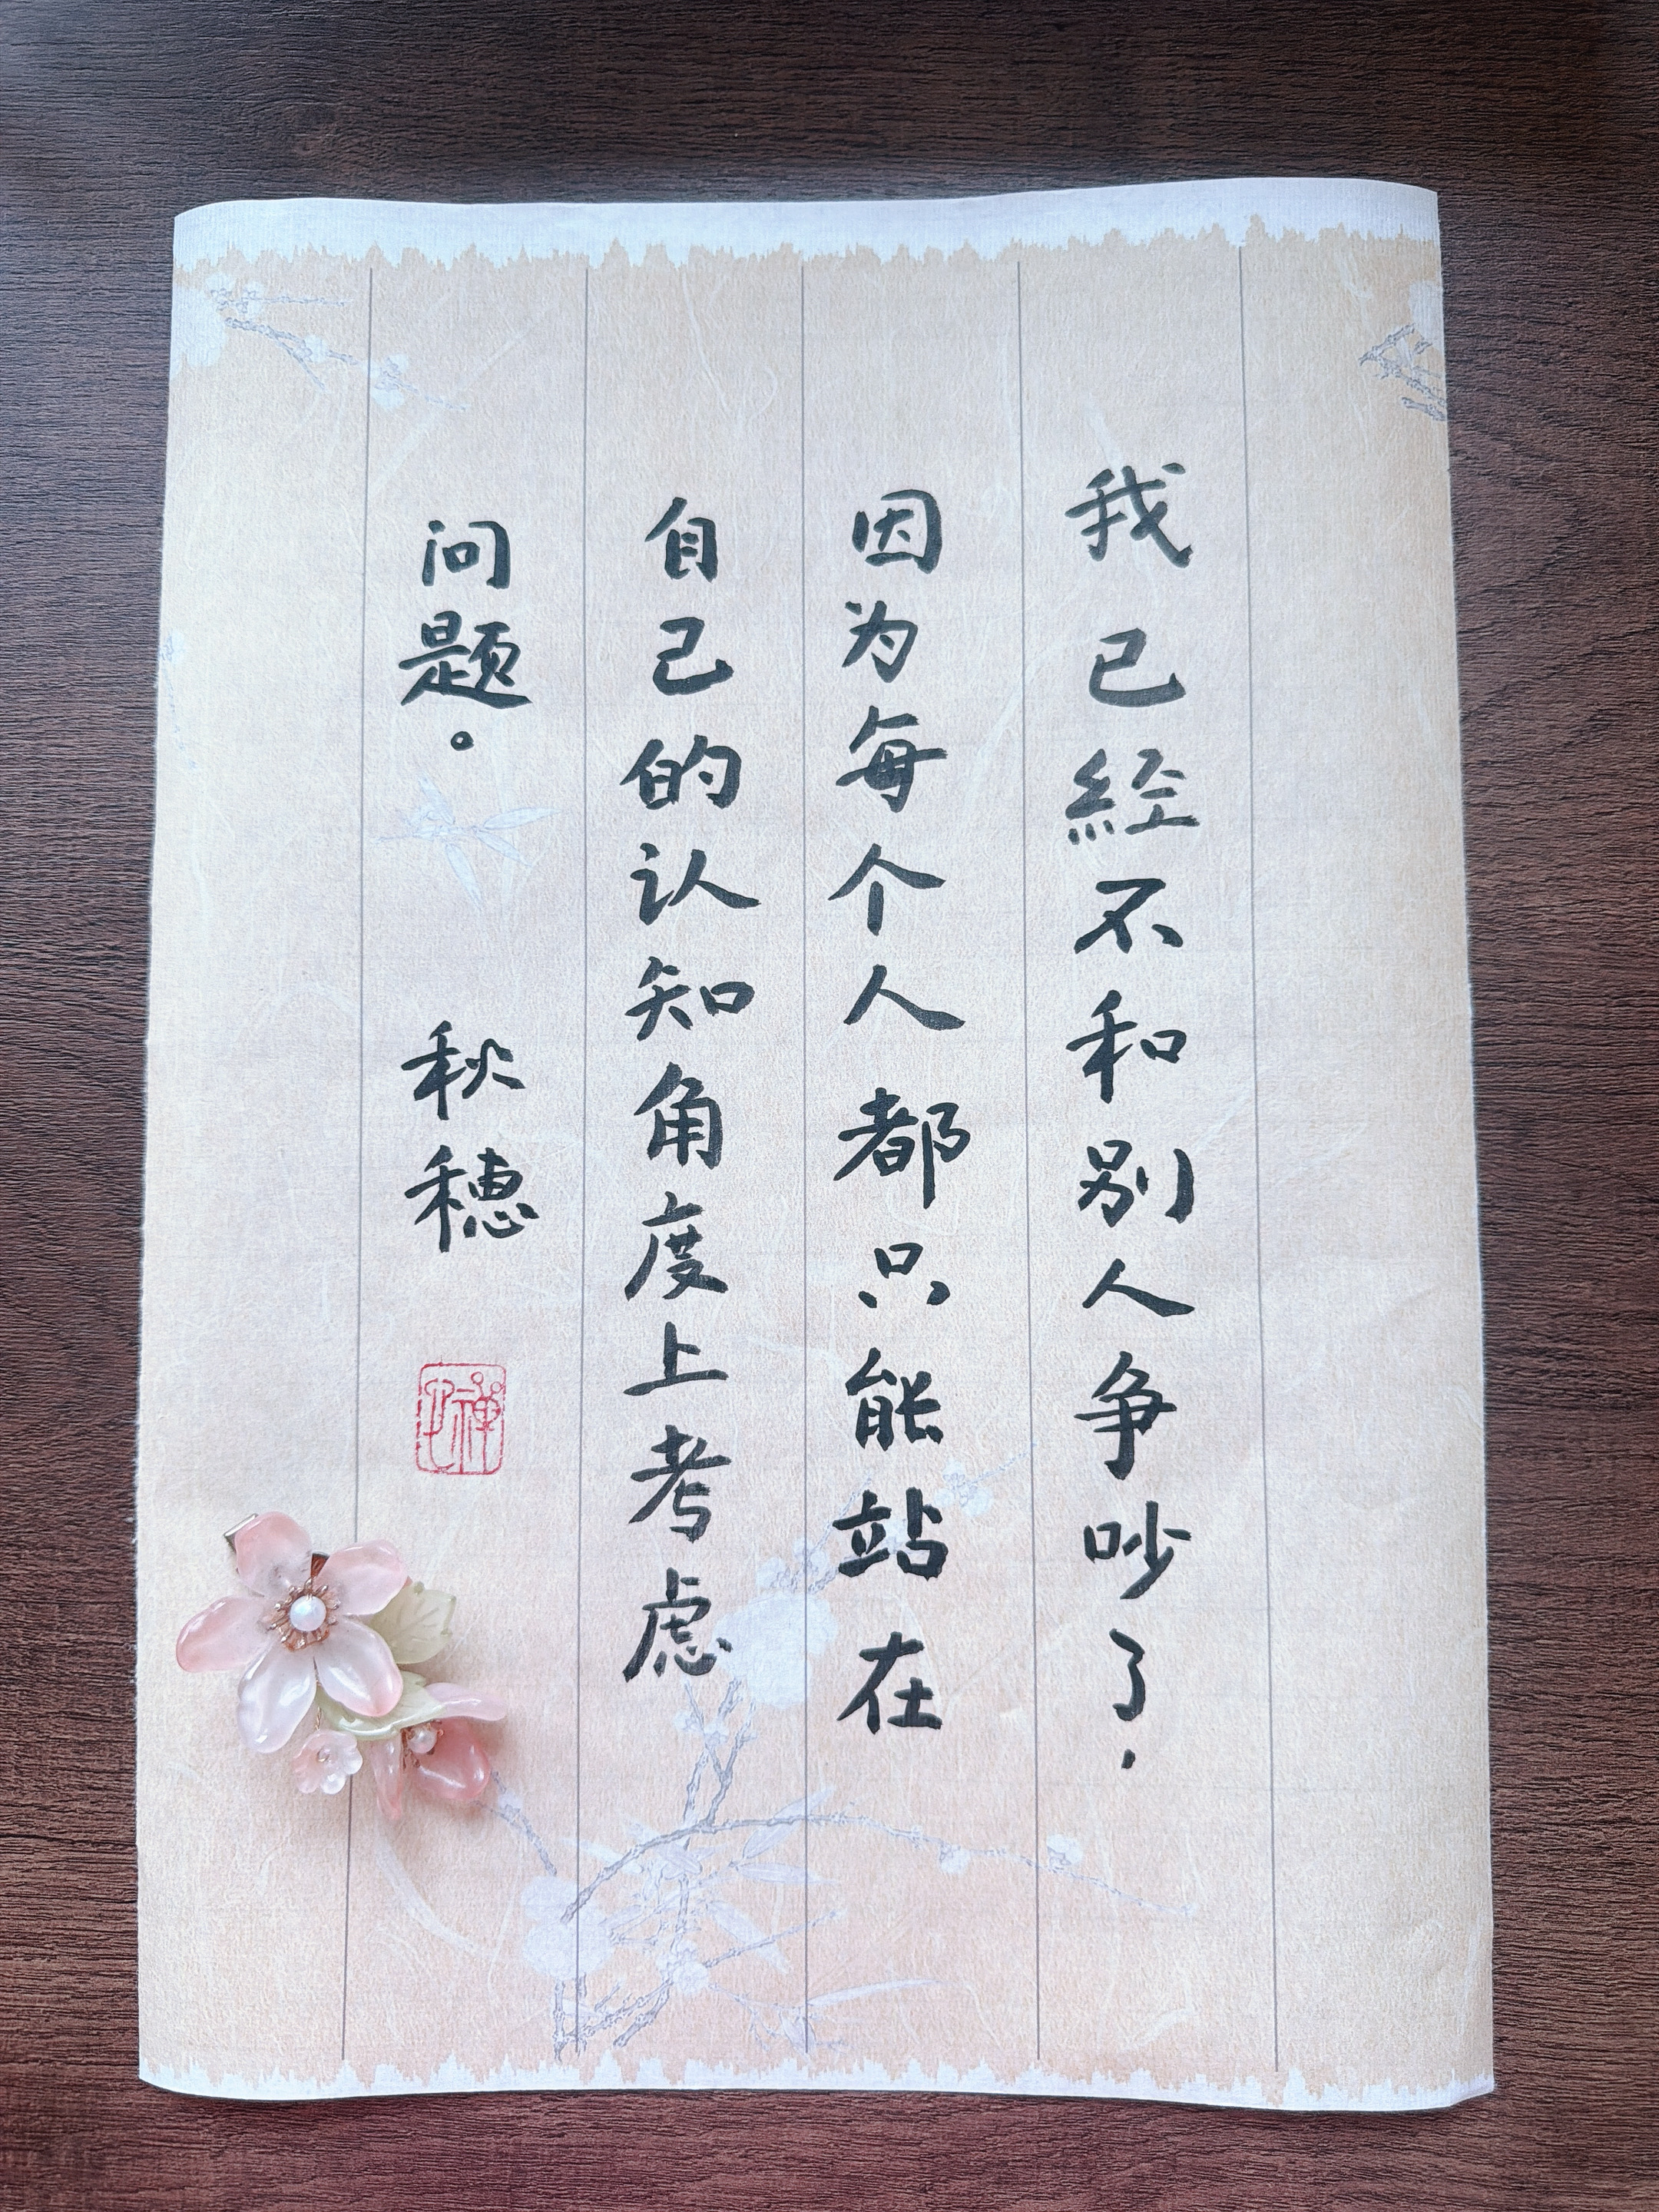 我已經不和别人争吵了，
因为每个人都只能站在
自己的认知角度上考虑
问题。 秋穗